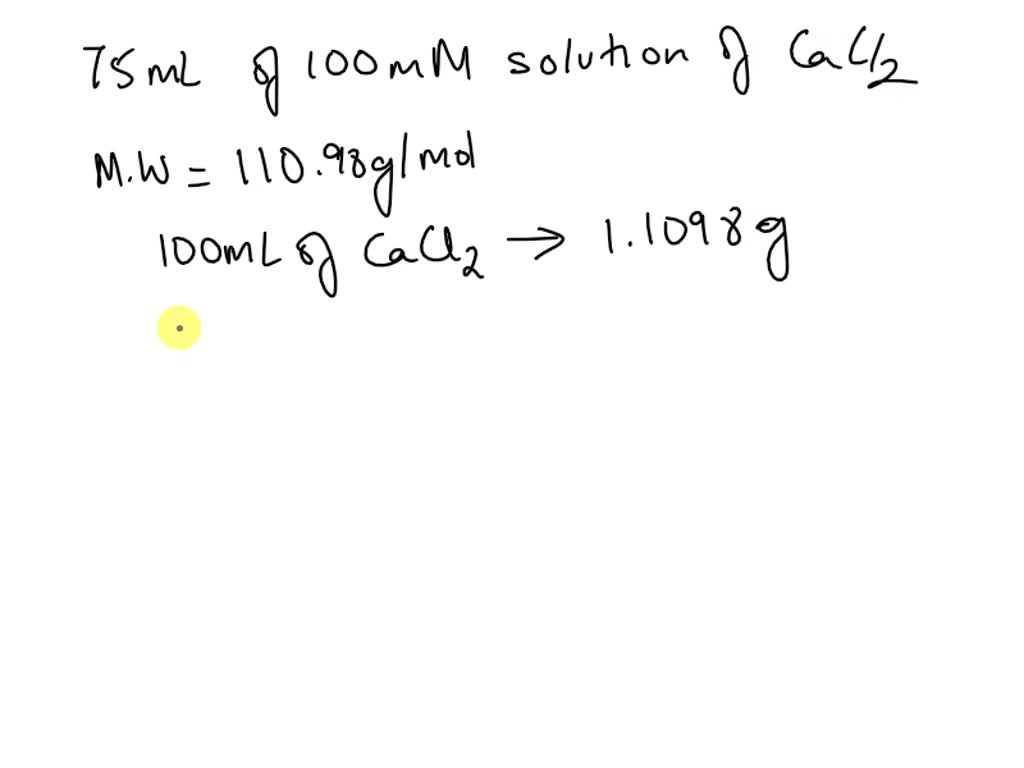 75 mL of 100 mM solution of CaCl2
M.W = 110.98g/mol
100mL of CaCl2 → 1.1098g